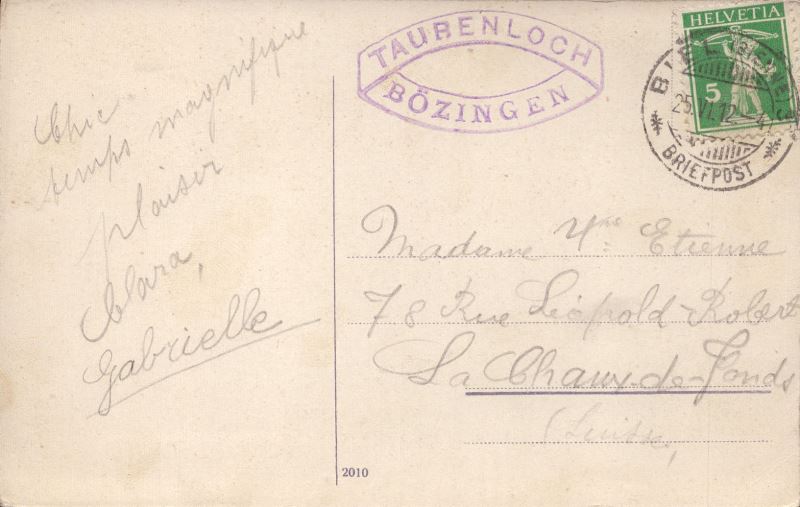 Chic
temps magnifique
plaisir
Clara,
Gabrielle
TAUBENLOCH
BÖZINGEN
HELVETIA
5
BIEL
25.VI.12
BRIEFPOST
Madame Etienne
78 Rue Léopold-Robert
La Chaux-de-Fonds
(Suisse)
2010